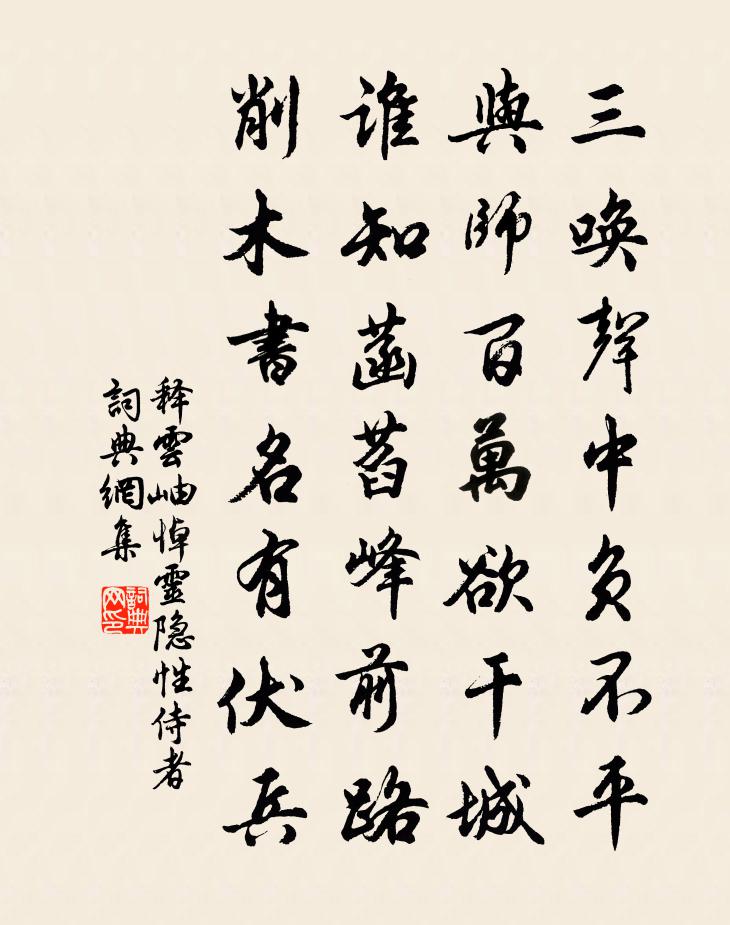 三唤聲中負不平
與師百萬欲干城
誰知菡萏峰前路
削木書名有伏兵
释雲岫悼靈隐性侍者
詞典網集
詞典网印